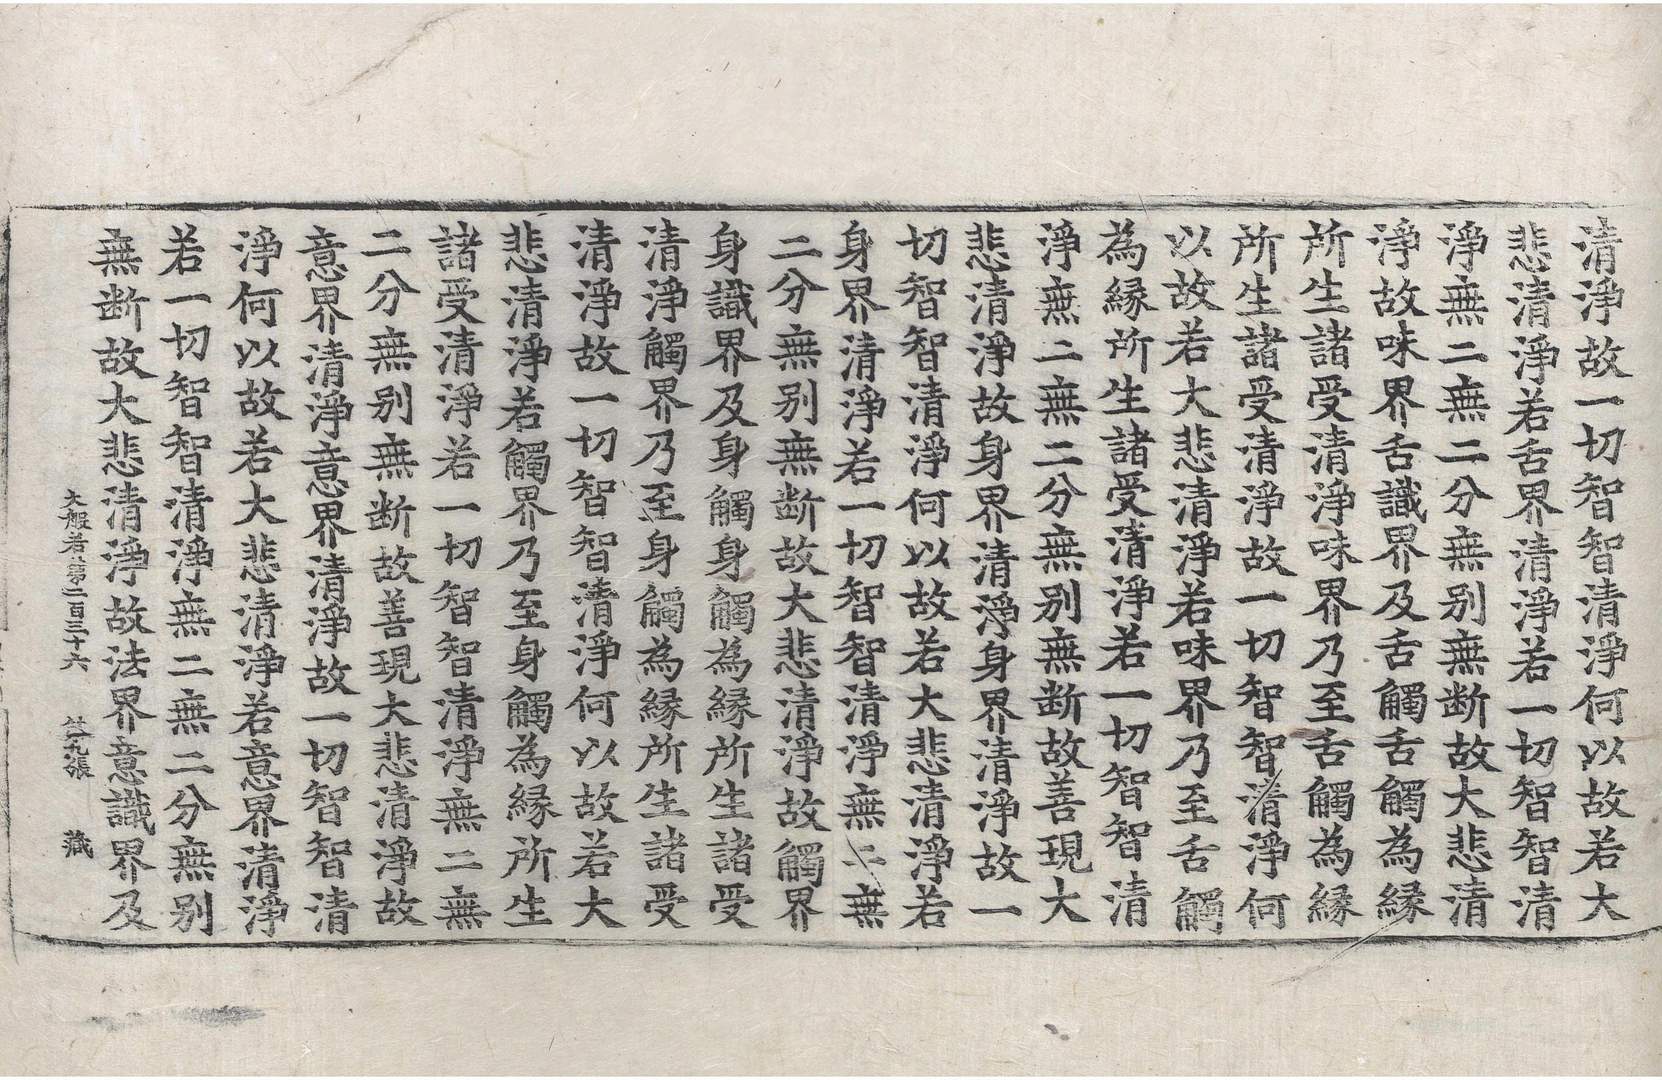 清淨故一切智智清淨何以故若大
悲清淨若舌界清淨若一切智智清
淨無二無二分無别無断故大悲清
淨故味界舌識界及舌觸舌觸為縁
所生諸受清淨味界乃至舌觸為縁
所生諸受清淨故一切智智清淨何
以故若大悲清淨若味界乃至舌觸
為縁所生諸受清淨若一切智智清
淨無二無二分無别無断故善現大
悲清淨故身界清淨身界清淨故一
切智智清淨何以故若大悲清淨若
身界清淨若一切智智清淨無二無
二分無别無断故大悲清淨故觸界
身識界及身觸身觸為縁所生諸受
清淨觸界乃至身觸為縁所生諸受
清淨故一切智智清淨何以故若大
悲清淨若觸界乃至身觸為縁所生
諸受清淨若一切智智清淨無二無
二分無别無断故善現大悲清淨故
意界清淨意界清淨故一切智智清
淨何以故若大悲清淨若意界清淨
若一切智智清淨無二無二分無别
無断故大悲清淨故法界意識界及
大般若第二百三十六 第九張 藏